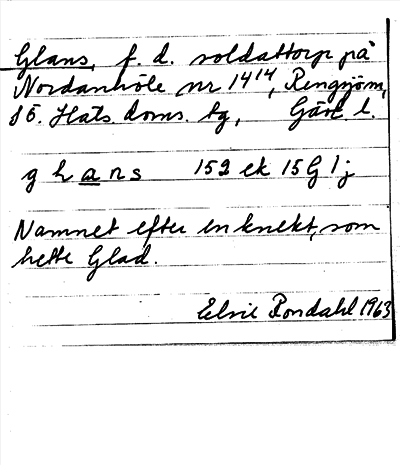 Glans, f. d. soldattorp på
Nordanhöle nr 14 14, Rengsjö sn,
S Ö. Häls. doms. tg, Gävl. l.
g l a n s 152 ek 15 G 1 j
Namnet efter en knekt, som
hette Glad.
Elsie Rondahl 1963